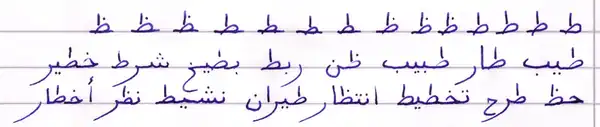 ط ط ط ط ط ظ ظ ط ط ط ط ط ظ ظ ظ
طيب طار طبيب ظن ربط بطيخ شرط خطير
حظ طرح تخطيط انتظار طيران نشيط نظر أخطار